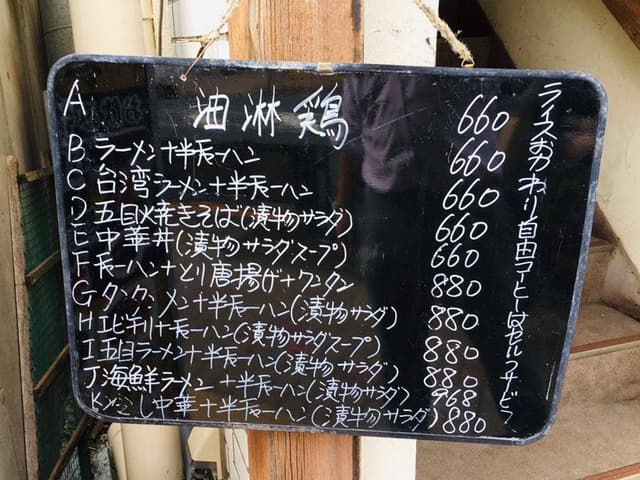 A 油淋鶏 660
B ラーメン+半チャーハン 660
C 台湾ラーメン+半チャーハン 660
D 五目焼きそば(漬物サラダ) 660
E 中華丼(漬物サラダスープ) 660
F チャーハン+とり唐揚げ+ワンタン 880
G タンタンメン+半チャーハン(漬物サラダ) 880
H エビチリ+チャーハン(漬物サラダスープ) 880
I 五目ラーメン+半チャーハン(漬物サラダ) 880
J 海鮮ラーメン+半チャーハン(漬物サラダ) 968
K 冷し中華+半チャーハン(漬物サラダ) 880
ライスおかわり自由コーヒーはセルフサービス